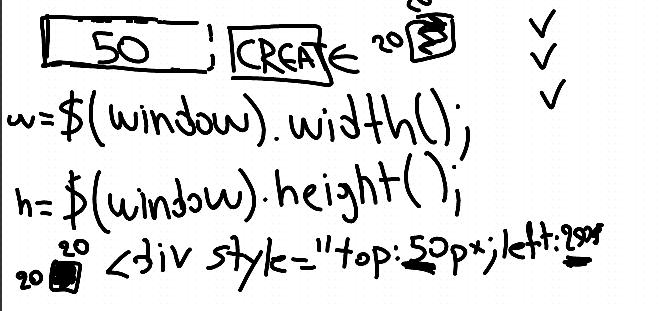 50 CREATE 20 20
w=$(window).width();
h=$(window).height();
20
20 <div style="top:50px;left: